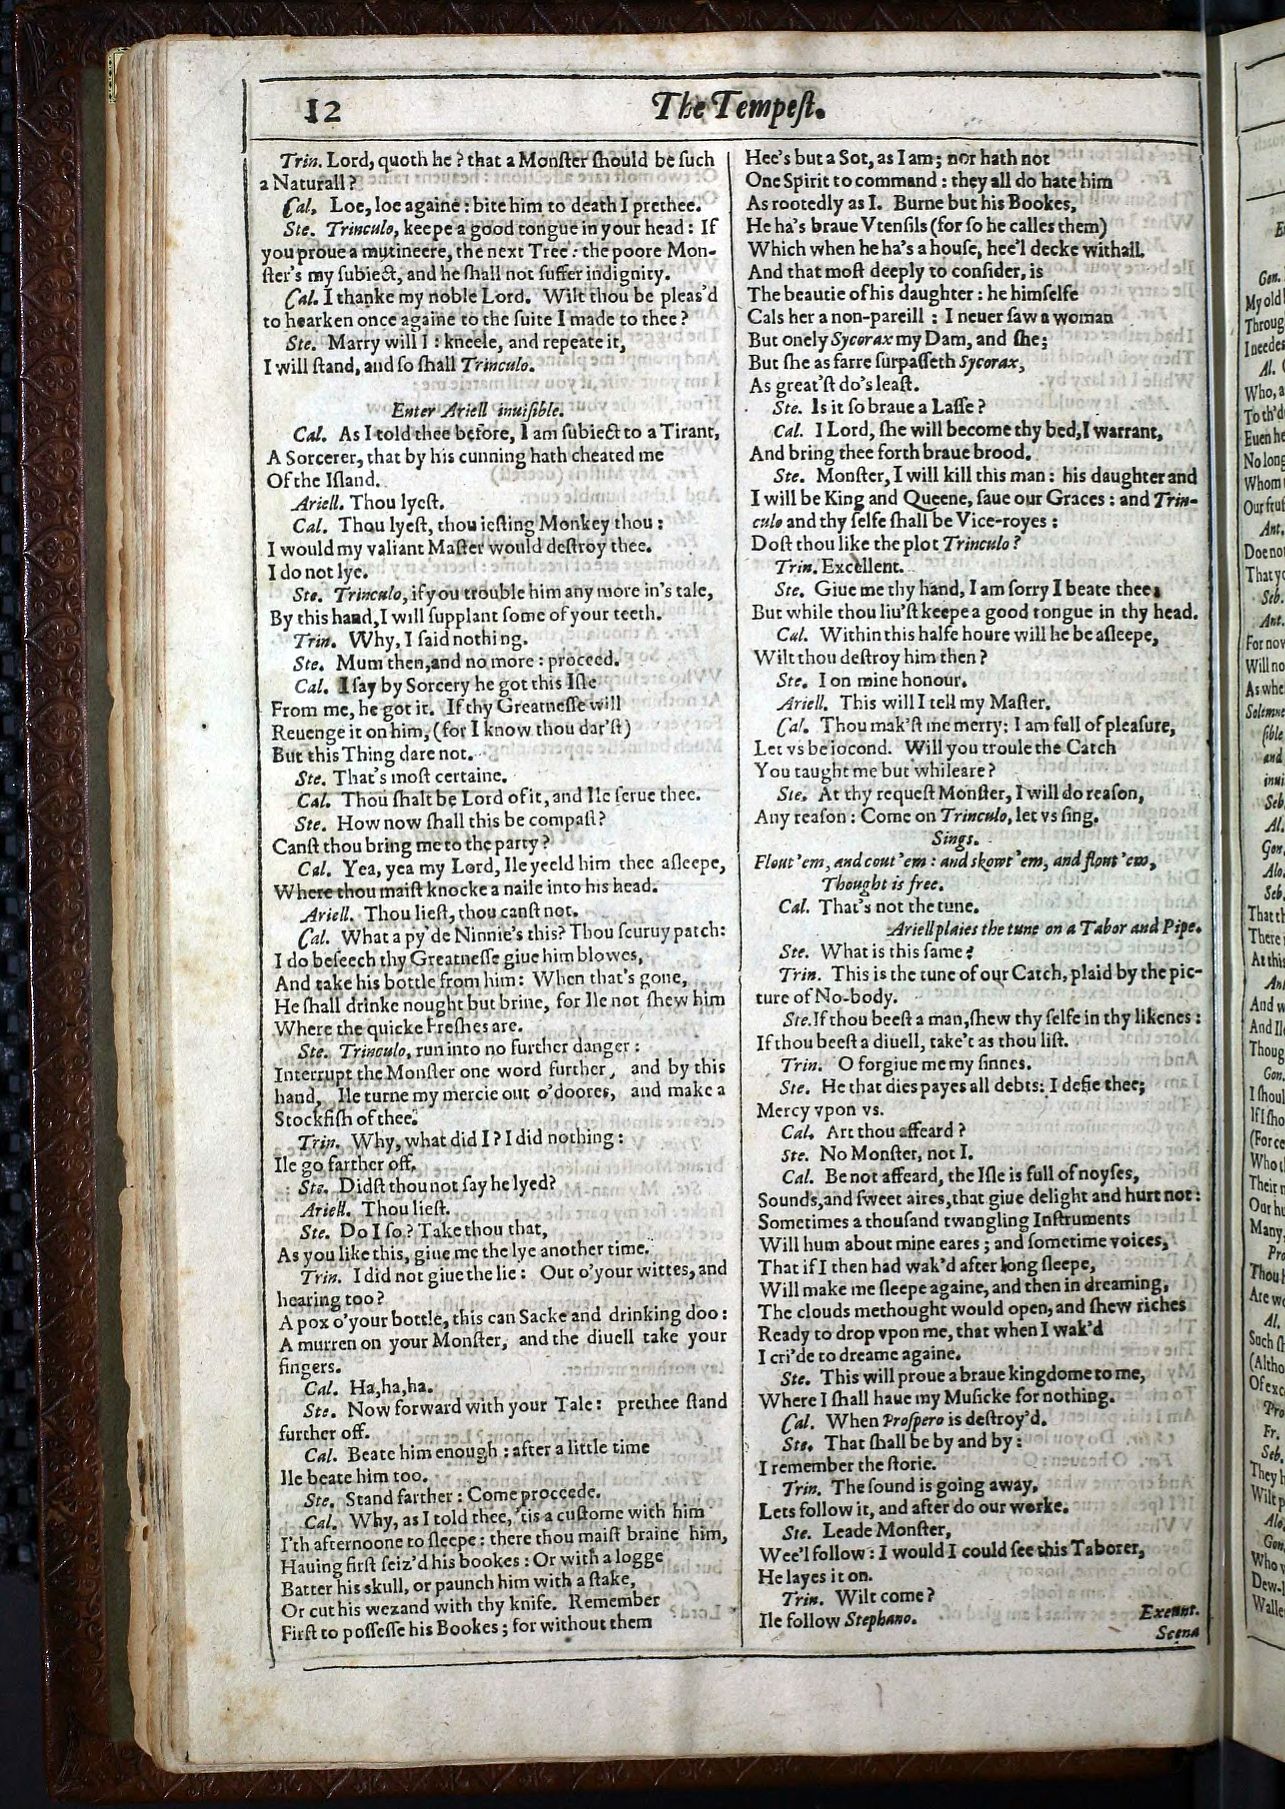 12
The Tempeſt.
Trin. Lord, quoth he? that a Monſter ſhould be ſuch
a Naturall?
Cal. Loe, loe againe: bite him to death I prethee.
Ste. Trinculo, keepe a good tongue in your head: If
you proue a mutineere, the next Tree: the poore Mon-
ſter's my ſubiect, and he ſhall not ſuffer indignity.
Cal. I thanke my noble Lord. Wilt thou be pleas'd
to hearken once againe to the ſuite I made to thee?
Ste. Marry will I: kneele, and repeate it,
I will ſtand, and ſo ſhall Trinculo.
Enter Ariell inuiſible.
Cal. As I told thee before, I am ſubiect to a Tirant,
A Sorcerer, that by his cunning hath cheated me
Of the Iſland.
Ariell. Thou lyeſt.
Cal. Thou lyeſt, thou ieſting Monkey thou:
I would my valiant Maſter would deſtroy thee.
I do not lye.
Ste. Trinculo, if you trouble him any more in's tale,
By this hand, I will ſupplant ſome of your teeth.
Trin. Why, I ſaid nothing.
Ste. Mum then, and no more: proceed.
Cal. I ſay by Sorcery he got this Iſle
From me, he got it. If thy Greatneſſe will
Reuenge it on him, (for I know thou dar'ſt)
But this Thing dare not.
Ste. That's moſt certaine.
Cal. Thou ſhalt be Lord of it, and Ile ſerue thee.
Ste. How now ſhall this be compaſt?
Canſt thou bring me to the party?
Cal. Yea, yea my Lord, Ile yeeld him thee aſleepe,
Where thou maiſt knocke a naile into his head.
Ariell. Thou lieſt, thou canſt not.
Cal. What a py'de Ninnie's this? Thou ſcuruy patch:
I do beſeech thy Greatneſſe giue him blowes,
And take his bottle from him: When that's gone,
He ſhall drinke nought but brine, for Ile not ſhew him
Where the quicke Freſhes are.
Ste. Trinculo, run into no further danger:
Interrupt the Monſter one word further, and by this
hand, Ile turne my mercie out o'doores, and make a
Stockfiſh of thee.
Trin. Why, what did I? I did nothing:
Ile go farther off.
Ste. Didſt thou not ſay he lyed?
Ariell. Thou lieſt.
Ste. Do I ſo? Take thou that,
As you like this, giue me the lye another time.
Trin. I did not giue the lie: Out o'your wittes, and
hearing too?
A pox o'your bottle, this can Sacke and drinking doo:
A murren on your Monſter, and the diuell take your
fingers.
Cal. Ha, ha, ha.
Ste. Now forward with your Tale: prethee ſtand
further off.
Cal. Beate him enough: after a little time
Ile beate him too.
Ste. Stand farther: Come proceede.
Cal. Why, as I told thee, 'tis a cuſtome with him
I'th afternoone to ſleepe: there thou maiſt braine him,
Hauing firſt ſeiz'd his bookes: Or with a logge
Batter his skull, or paunch him with a ſtake,
Or cut his wezand with thy knife. Remember
Firſt to poſſeſſe his Bookes; for without them
Hee's but a Sot, as I am; nor hath not
One Spirit to command: they all do hate him
As rootedly as I. Burne but his Bookes,
He ha's braue Vtenſils (for ſo he calles them)
Which when he ha's a houſe, hee'l decke withall.
And that moſt deeply to conſider, is
The beautie of his daughter: he himſelfe
Cals her a non-pareill: I neuer ſaw a woman
But onely Sycorax my Dam, and ſhe;
But ſhe as farre ſurpaſſeth Sycorax,
As great'ſt do's leaſt.
Ste. Is it ſo braue a Laſſe?
Cal. I Lord, ſhe will become thy bed, I warrant,
And bring thee forth braue brood.
Ste. Monſter, I will kill this man: his daughter and
I will be King and Queene, ſaue our Graces: and Trin-
culo and thy ſelfe ſhall be Vice-royes:
Doſt thou like the plot Trinculo?
Trin. Excellent.
Ste. Giue me thy hand, I am ſorry I beate thee,
But while thou liu'ſt keepe a good tongue in thy head.
Cal. Within this halfe houre will he be aſleepe,
Wilt thou deſtroy him then?
Ste. I on mine honour.
Ariell. This will I tell my Maſter.
Cal. Thou mak'ſt me merry: I am full of pleaſure,
Let vs be iocond. Will you troule the Catch
You taught me but whileare?
Ste. At thy requeſt Monſter, I will do reaſon,
Any reaſon: Come on Trinculo, let vs ſing.
Sings.
Flout 'em, and cout 'em: and skowt 'em, and flout 'em,
Thought is free.
Cal. That's not the tune.
Ariell plaies the tune on a Tabor and Pipe.
Ste. What is this ſame?
Trin. This is the tune of our Catch, plaid by the pic-
ture of No-body.
Ste. If thou beeſt a man, ſhew thy ſelfe in thy likenes:
If thou beeſt a diuell, take't as thou liſt.
Trin. O forgiue me my ſinnes.
Ste. He that dies payes all debts: I defie thee;
Mercy vpon vs.
Cal. Art thou affeard?
Ste. No Monſter, not I.
Cal. Be not affeard, the Iſle is full of noyſes,
Sounds, and ſweet aires, that giue delight and hurt not:
Sometimes a thouſand twangling Inſtruments
Will hum about mine eares; and ſometime voices,
That if I then had wak'd after long ſleepe,
Will make me ſleepe againe, and then in dreaming,
The clouds methought would open, and ſhew riches
Ready to drop vpon me, that when I wak'd
I cri'de to dreame againe.
Ste. This will proue a braue kingdome to me,
Where I ſhall haue my Muſicke for nothing.
Cal. When Proſpero is deſtroy'd.
Ste. That ſhall be by and by:
I remember the ſtorie.
Trin. The ſound is going away,
Lets follow it, and after do our worke.
Ste. Leade Monſter,
Wee'l follow: I would I could ſee this Taborer,
He layes it on.
Trin. Wilt come?
Ile follow Stephano.
Exeunt.
Scena